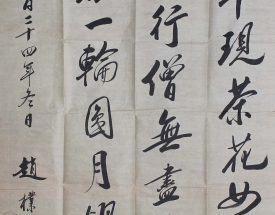 現茶花女
行僧無盡
一輪圓月
二十四年冬日
趙樸